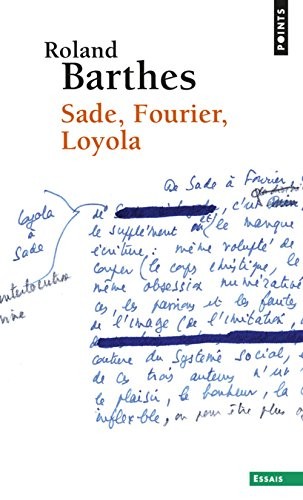 Roland
Barthes
Sade, Fourier,
Loyola
POINTS
De Sade à Fourier,
de c'est
le supplément le manque
écriture : même volupté de
couper (le corps christique, le
même obsession numérative
ces, les passions et les fautes
de l'image (de l'imitation,
couture du système social,
de ces trois auteurs n'
le plaisir, le bonheur, la
inflexible, ou pour être plus
Loyola
à
Sade
ESSAIS